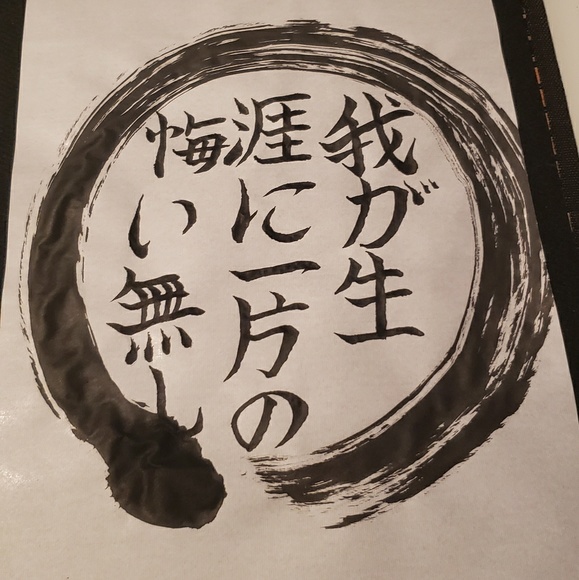 我が生
涯に一片の
悔い無し